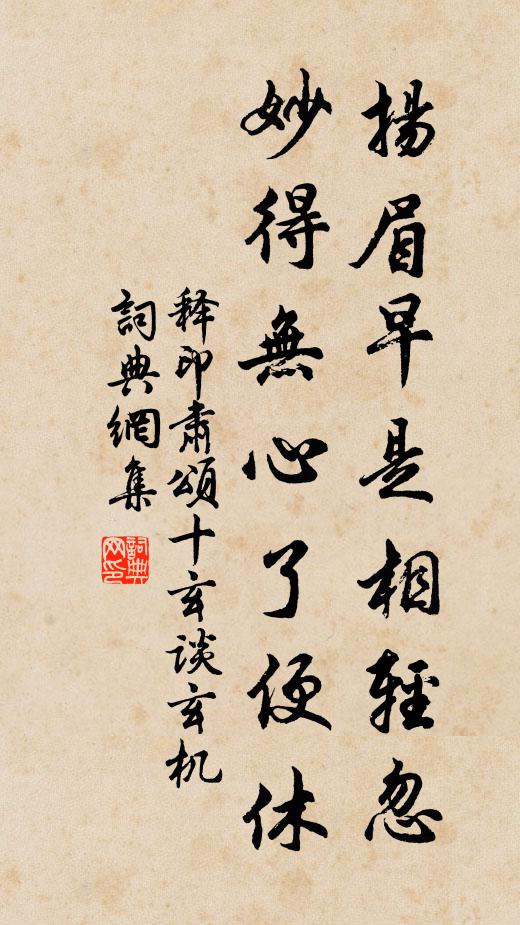 揚眉早是相輕忽
妙得無心了便休
释印肅頌十玄談玄机
詞典網集
詞典网印